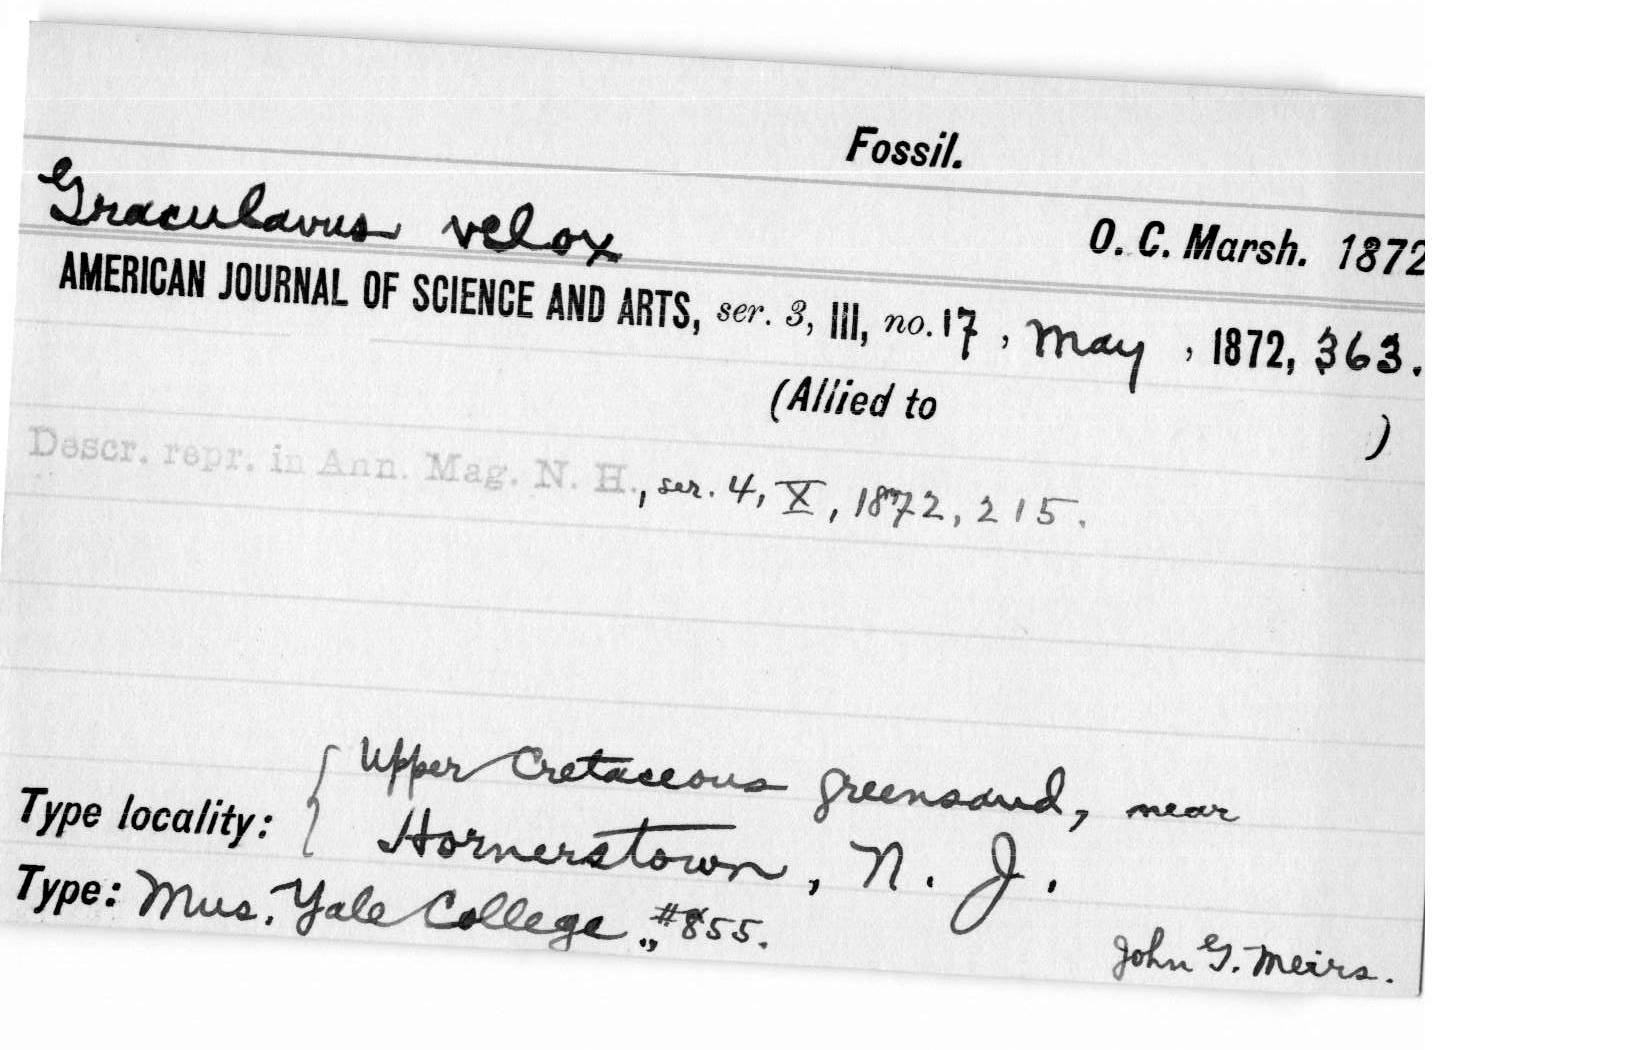 Fossil.
Graculavus velox
O. C. Marsh. 1872
AMERICAN JOURNAL OF SCIENCE AND ARTS, ser. 3, III, no. 17, May, 1872, 363.
(Allied to )
Descr. repr. in Ann. Mag. N. H., ser. 4, X, 1872, 215.
Type locality: { Upper Cretaceous greensand, near
Hornerstown, N. J.
Type: Mus. Yale College, #855.
John G. Meirs.